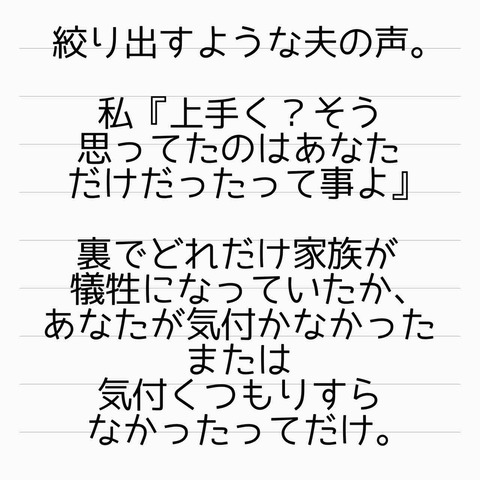 絞り出すような夫の声。
私『上手く？そう
思ってたのはあなた
だけだったって事よ』
裏でどれだけ家族が
犠牲になっていたか、
あなたが気付かなかった
または
気付くつもりすら
なかったってだけ。